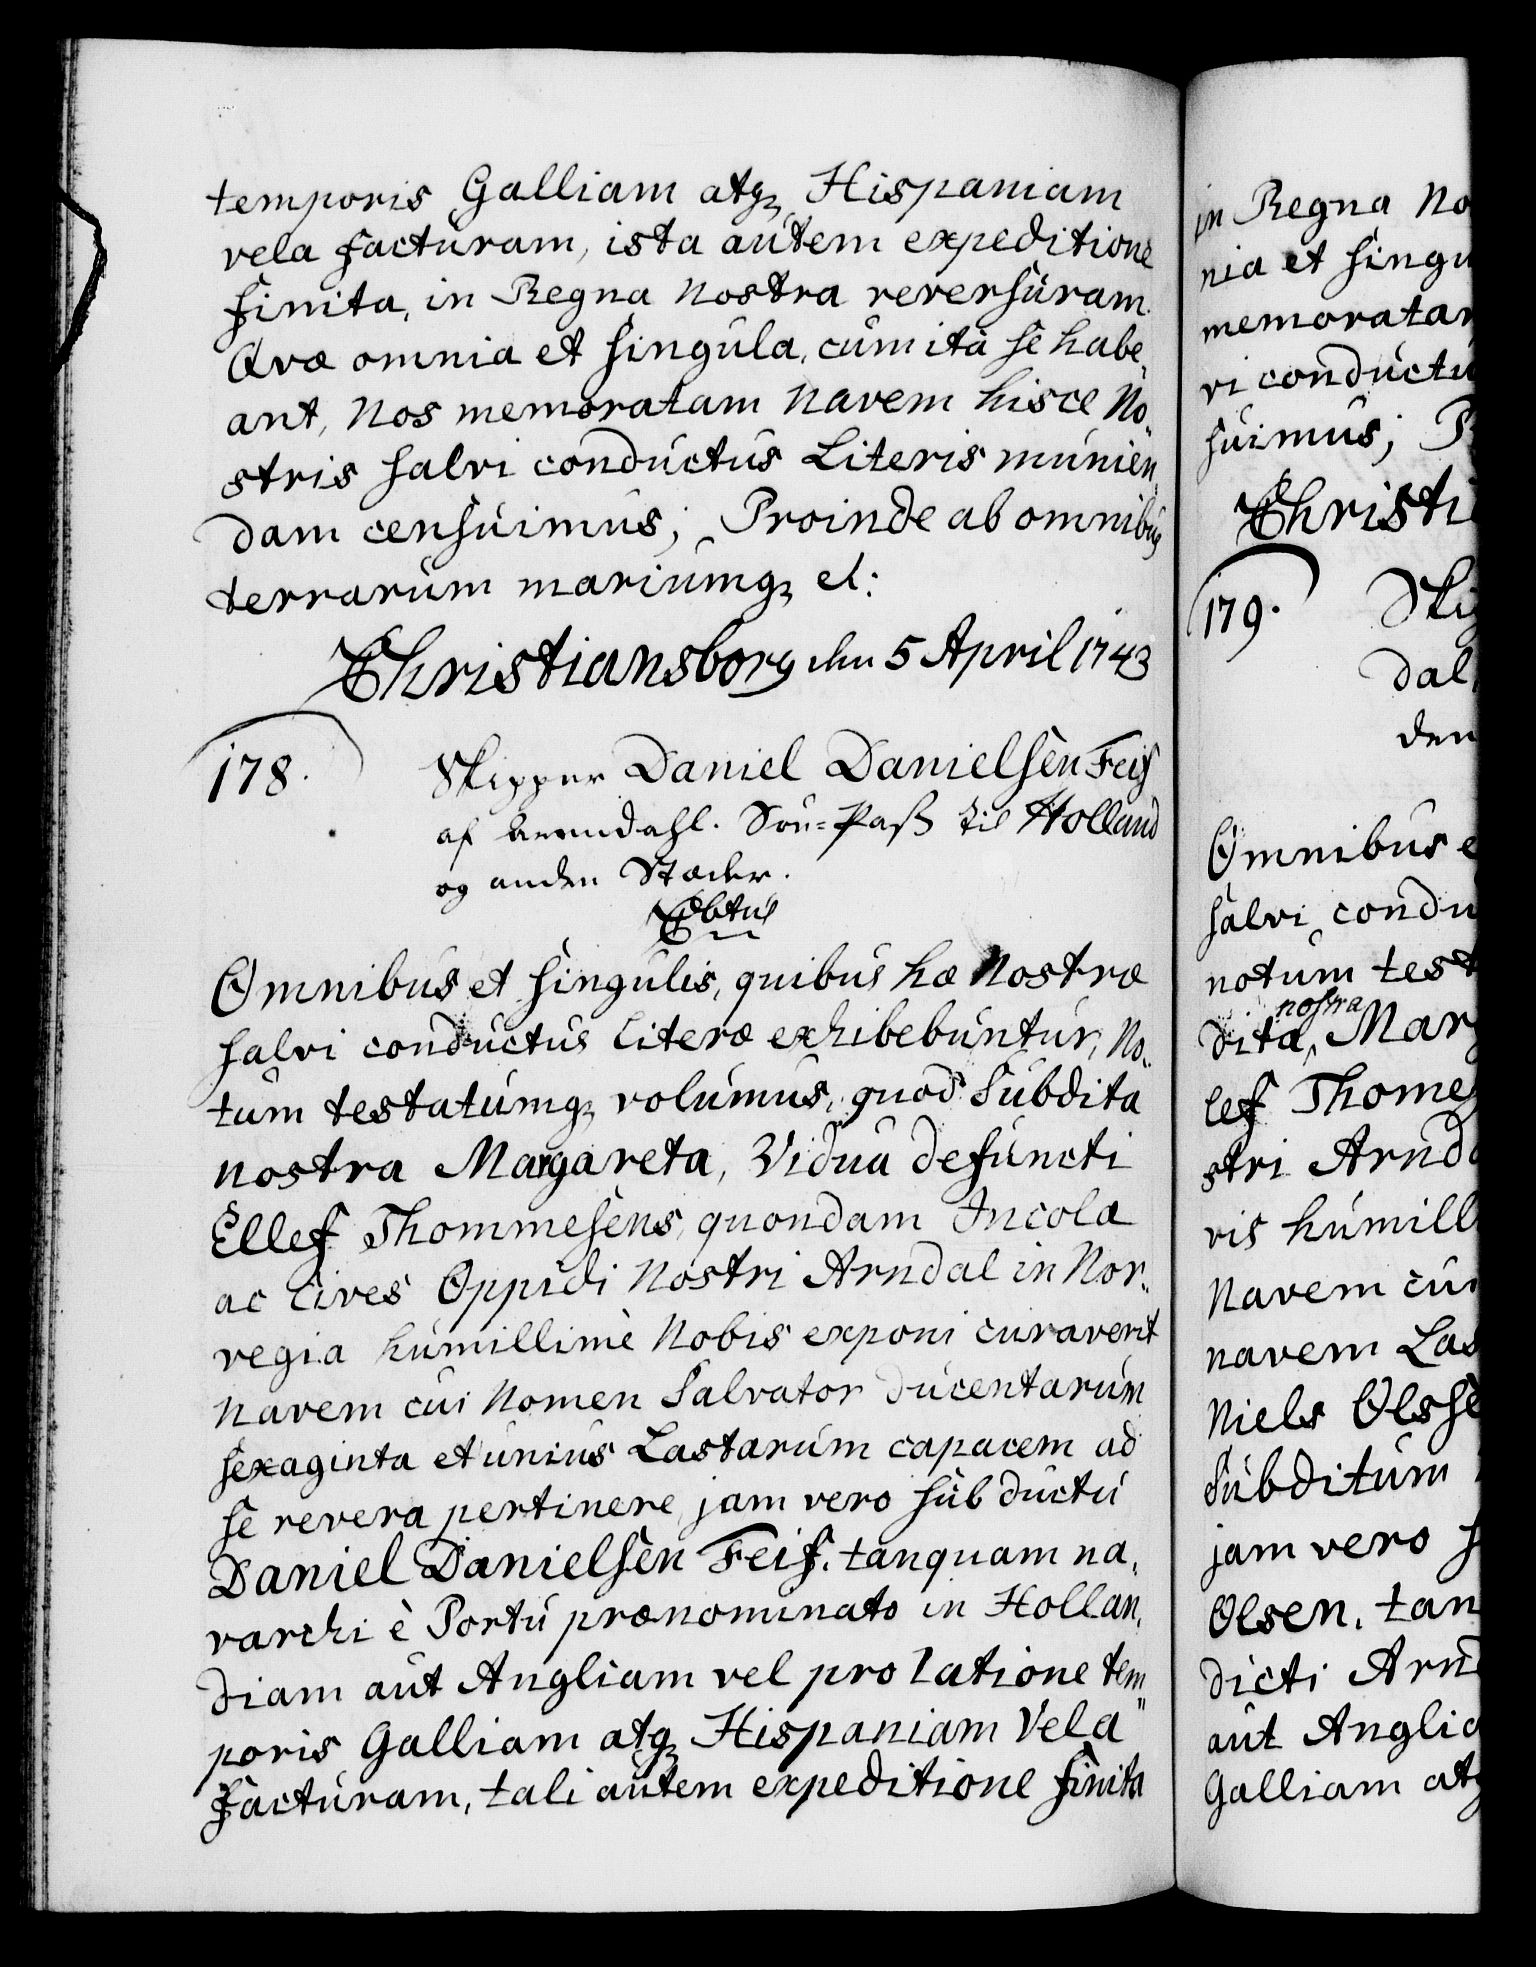 temporis Galliam atqꝫ Hispaniam
vela facturam, ista autem expeditione
finita, in Regna Nostra reversuram.
Qvæ omnia et singula, cum ita se habe„
ant, Nos memoratam Navem hisce No„
stris salvi conductus Literis munien„
dam censuimus; Proinde ab omnibus
terrarum mariumqꝫ et:
Christiansborg den 5 April 1743
178. Skipper Daniel Danielsen Feis
af Arendahl. Søe-Pass til Holland
og anden Stæder.
Omnibus et singulis, quibus hæ Nostræ
salvi conductus literæ exhibebuntur, No„
tum testatumqꝫ volumus, quod Subdita
nostra Margareta, Vidua defuncti
Ellef Thommesens, quondam Incola
ac Cives Oppidi Nostri Arndal in Nor„
vegia humillimè Nobis exponi curaverit
Navem cui Nomen Salvator ducentarum
sexaginta et unius Lastarum capacem ad
se revera pertinere, jam vero sub ductu
Daniel Danielsen Feis. tanquam na„
varchi è Portu prænominato in Hollan„
diam aut Angliam vel pro ratione tem„
poris Galliam atqꝫ Hispaniam Vela
facturam, tali autem expeditione finita
in Regna No
nia et singu
memoratam
vi conductu
suimus; P
Christi
179. Ski
dal
den
Omnibus e
salvi condu
notum test
nostra
dita, Mar
lef Thomes
stri Arnda
vis humill
Navem cui
navem Las
Niels Olsse
Subditum
jam vero s
Olsen, tan
dicti Arn
aut Anglia
Galliam atq